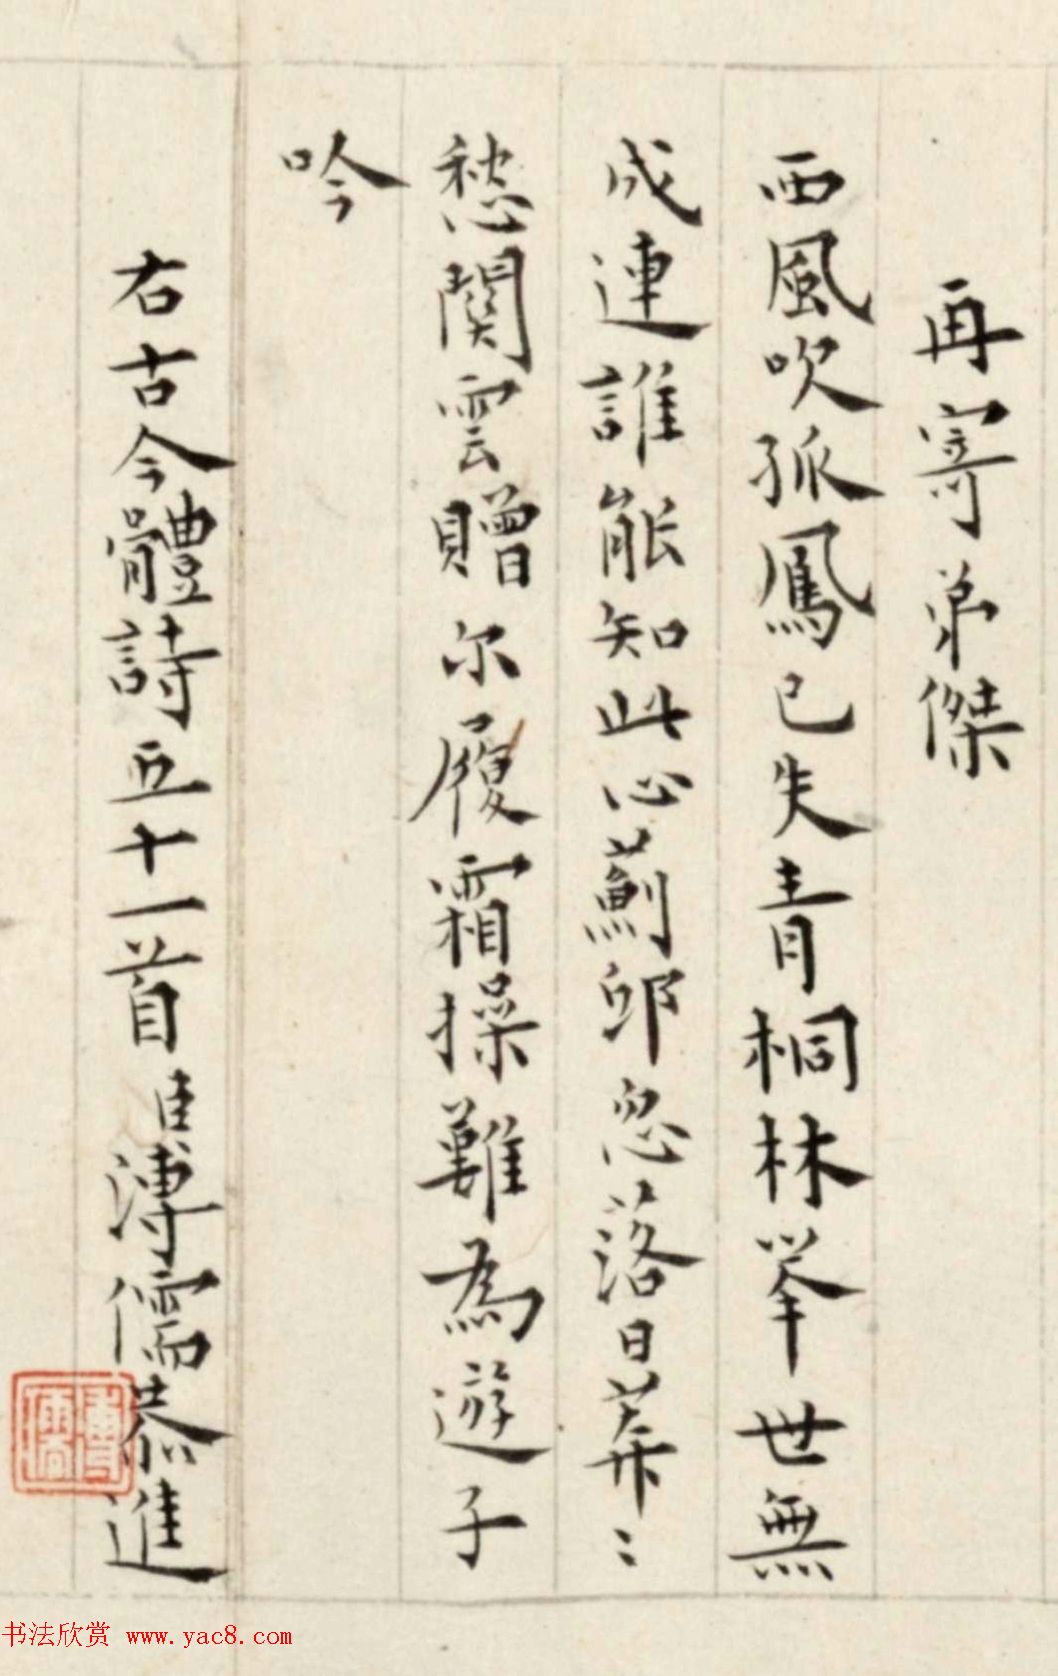 再寄弟傑
西風吹孤鳳已失青桐林舉世無
成連誰能知此心薊邱忽落日莽〻
愁關雲贈尔履霜操難為遊子
吟
右古今體詩五十一首 臣溥儒恭進
溥儒
书法欣赏 www.yac8.com